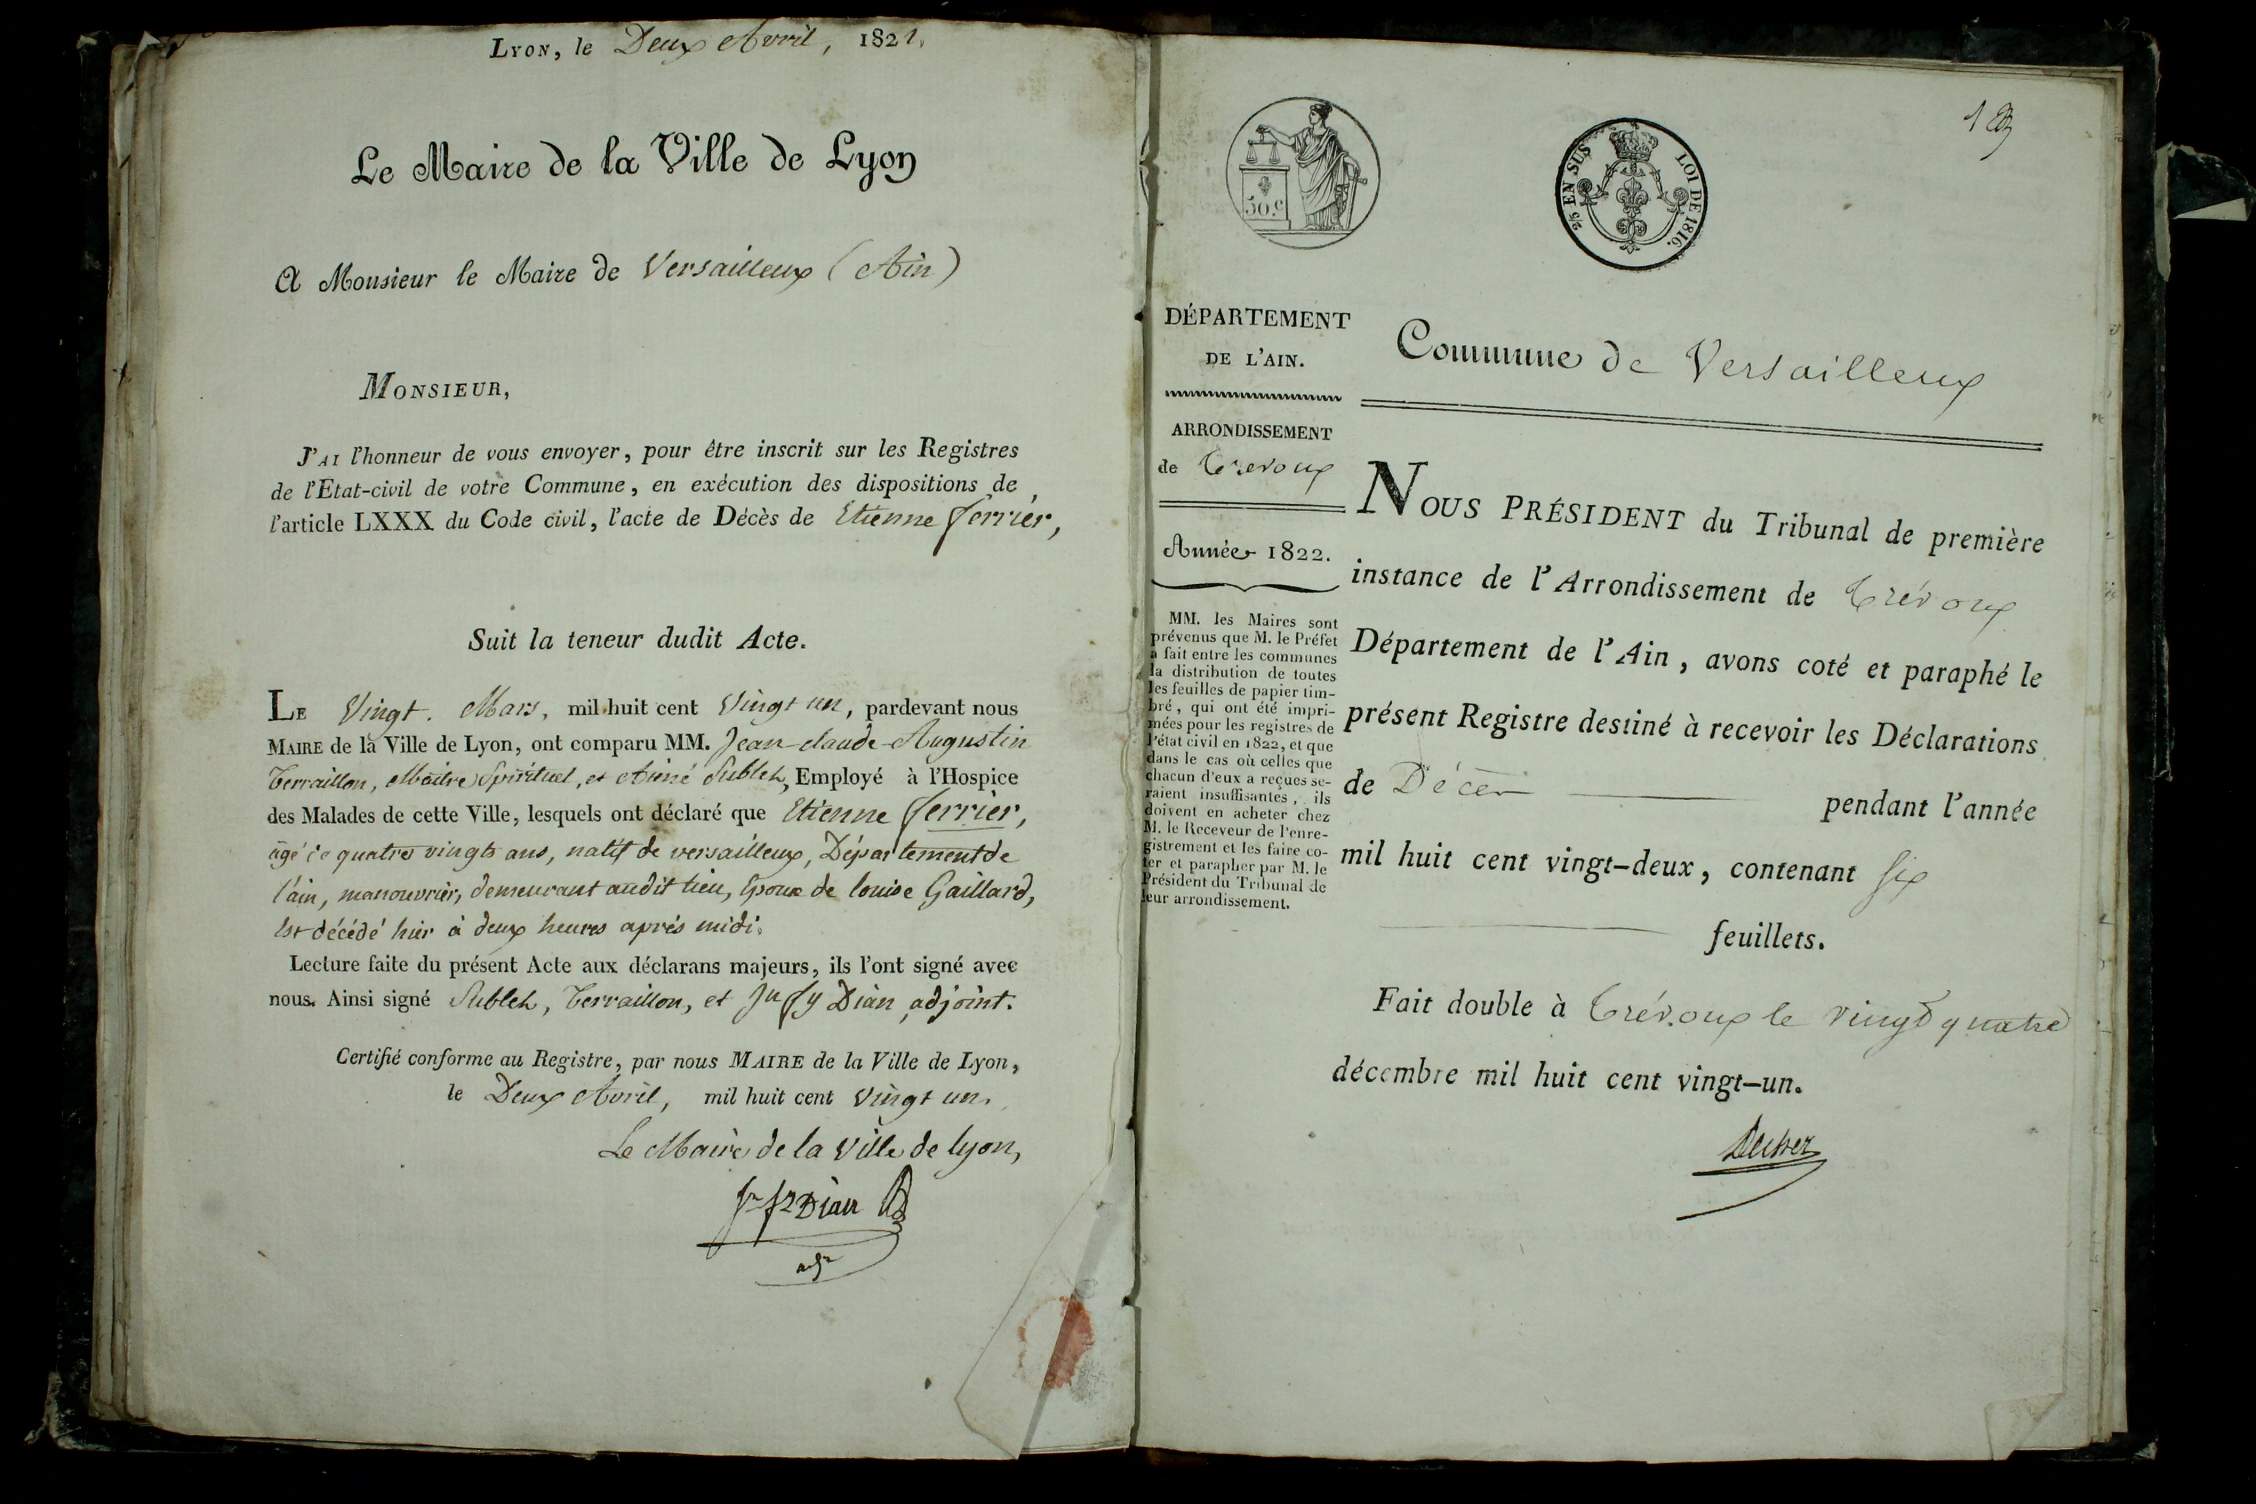 Lyon, le Deux Avril, 1821.
Le Maire de la Ville de Lyon
A Monsieur le Maire de Versailleux (Ain)
Monsieur,
J'ai l'honneur de vous envoyer, pour être inscrit sur les Registres
de l'Etat-civil de votre Commune, en exécution des dispositions de
l'article LXXX du Code civil, l'acte de Décès de Etienne ferrier,
Suit la teneur dudit Acte.
Le Vingt. Mars, mil huit cent Vingt un, pardevant nous
Maire de la Ville de Lyon, ont comparu MM. Jean-claude-Augustin
Terraillon, Maitre Spirituel, et Aimé Sublet, Employé à l'Hospice
des Malades de cette Ville, lesquels ont déclaré que Etienne ferrier,
agé de quatre vingts ans, natif de versailleux, Département de
l'ain, manouvrier, demeurant audit lieu, Epoux de louise Gaillard,
Est décédé hier à deux heures après midi.
Lecture faite du présent Acte aux déclarans majeurs, ils l'ont signé avec
nous. Ainsi signé Sublet, Terraillon, et Dian, adjoint.
Certifié conforme au Registre, par nous Maire de la Ville de Lyon,
le Deux Avril, mil huit cent Vingt un.
Le Maire de la Ville de lyon,
Dian
adj
1
50.c
2/5 EN SUS LOI DE 1816.
DÉPARTEMENT
DE L'AIN.
Commune de Versailleux
ARRONDISSEMENT
de Trevoux
Année 1822.
MM. les Maires sont
prévenus que M. le Préfet
a fait entre les communes
la distribution de toutes
les feuilles de papier tim-
bré, qui ont été impri-
mées pour les registres de
l'état civil en 1822, et que
dans le cas où celles que
chacun d'eux a reçues se-
raient insuffisantes, ils
doivent en acheter chez
M. le Receveur de l'enre-
gistrement et les faire co-
ter et parapher par M. le
Président du Tribunal de
leur arrondissement.
Nous PRÉSIDENT du Tribunal de première
instance de l'Arrondissement de Trévoux
Département de l'Ain, avons coté et paraphé le
présent Registre destiné à recevoir les Déclarations
de Décès pendant l'année
mil huit cent vingt-deux, contenant six
feuillets.
Fait double à Trévoux le vingt quatre
décembre mil huit cent vingt-un.